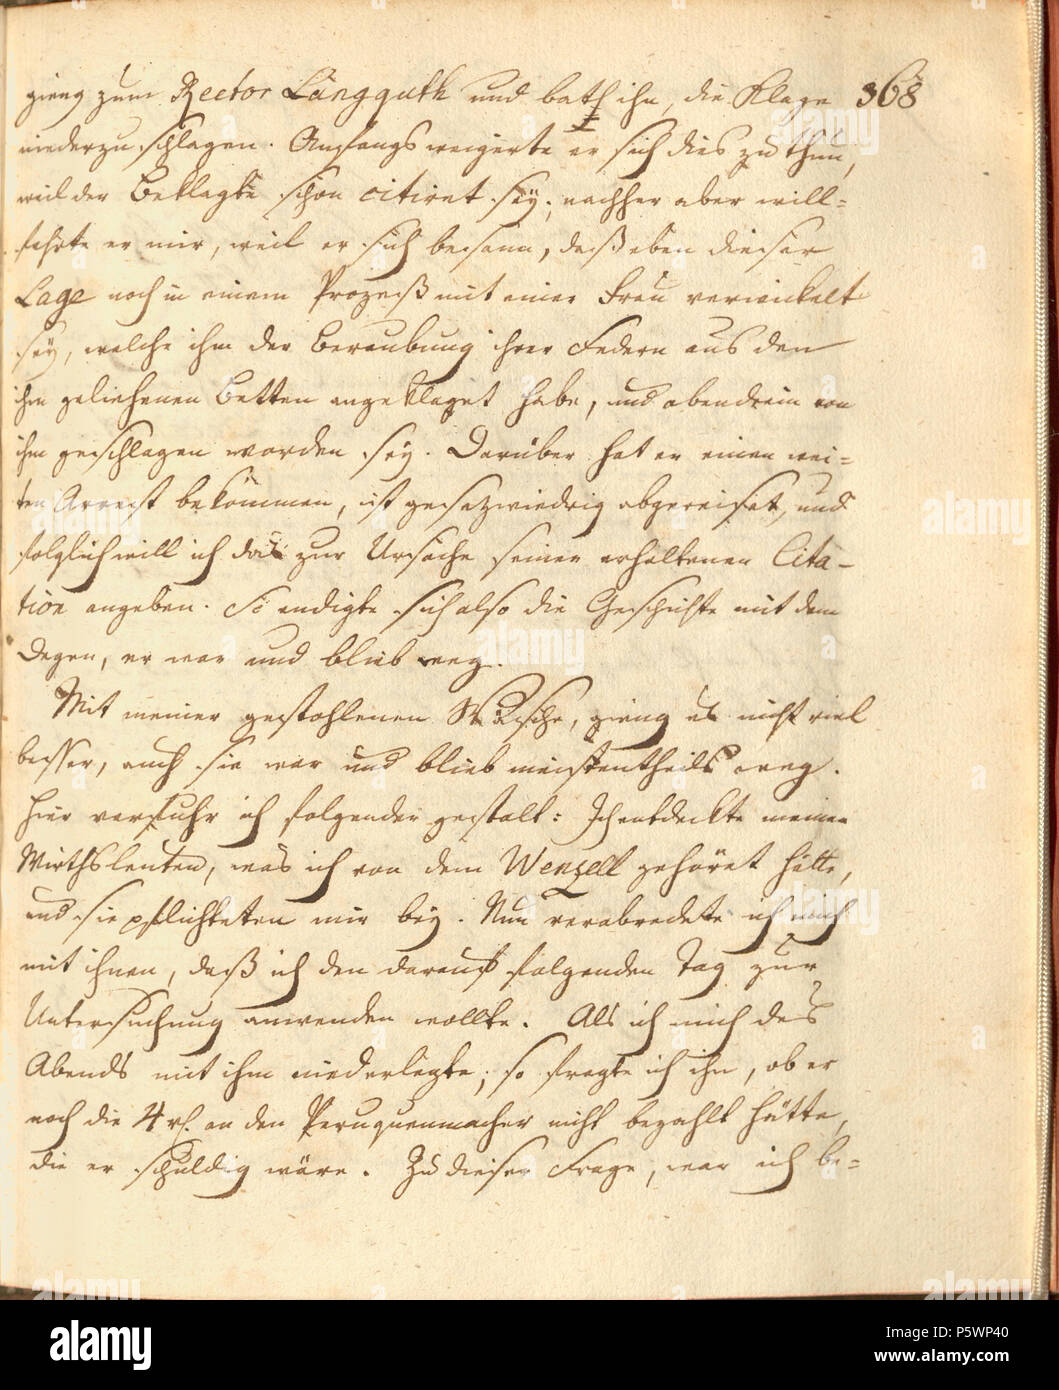 gieng zum Rector Langguth und bath ihn, die Klage 368
niederzuschlagen. Anfangs weigerte er sich dies zu thun,
weil der Beklagte schon citiret sey; nachher aber will=
fahrte er mir, weil er sich besann, daß eben dieser
Lage noch in einem Prozeß mit einer Frau verwickelt
sey, welche ihn der Beraubung ihrer Federn aus den
ihm geliehenen Betten angeklaget habe, und obendrein von
ihm geschlagen worden sey. Darüber hat er einen wei=
ten Arrest bekommen, ist gesezwiedrig abgereiset, und
folglich will ich das zur Ursache seiner erhaltenen Cita-
tion angeben. So endigte sich also die Geschichte mit dem
Degen, er war und blieb weg.
Mit meiner gestohlenen Wäsche, gieng es nicht viel
besser, auch sie war und blieb meistentheils weg.
Hier verfuhr ich folgender gestalt: Ich entdeckte meinen
Wirthsleuten, was ich von dem Wenzell gehöret hätte,
und sie pflichteten mir bey. Nun verabredete ich mich
mit ihnen, daß ich den darauf folgenden Tag zur
Untersuchung anwenden wollte. Als ich mich des
Abends mit ihm niederlegte, so fragte ich ihn, ob er
noch die 4 rl. an den Peruquenmacher nicht bezahlt hätte,
die er schuldig wäre. Zu dieser Frage, war ich be=
alamy
Image ID: P5WP40
www.alamy.com